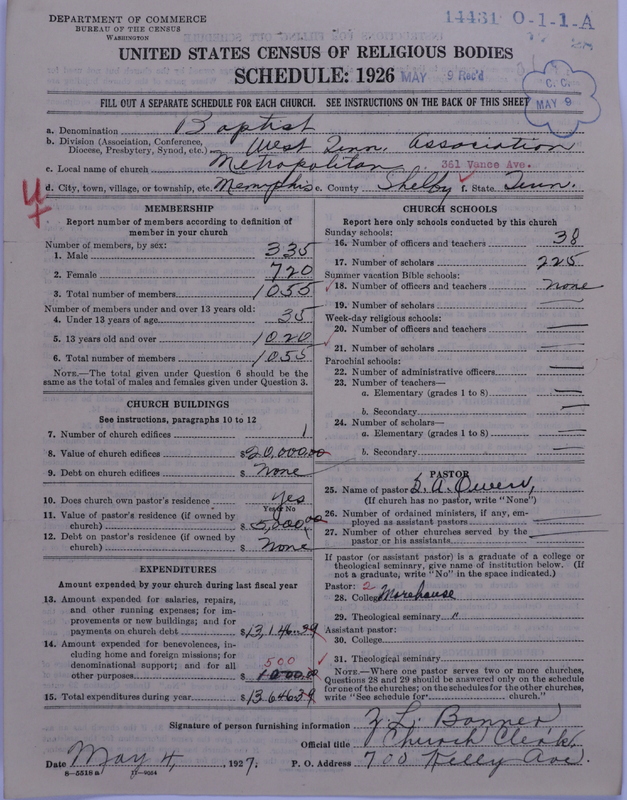 DEPARTMENT OF COMMERCE
BUREAU OF THE CENSUS
WASHINGTON
14431 O-1-1-A
UNITED STATES CENSUS OF RELIGIOUS BODIES
SCHEDULE: 1926 MAY 9 Rec'd
C. C.
MAY 9
FILL OUT A SEPARATE SCHEDULE FOR EACH CHURCH. SEE INSTRUCTIONS ON THE BACK OF THIS SHEET
a. Denomination Baptist
b. Division (Association, Conference, Diocese, Presbytery, Synod, etc.) West Tenn. Association
c. Local name of church Metropolitan 361 Vance Ave.
d. City, town, village, or township, etc. Memphis e. County Shelby f. State Tenn.
MEMBERSHIP
Report number of members according to definition of
member in your church
Number of members, by sex:
1. Male 335
2. Female 720
3. Total number of members 1055
Number of members under and over 13 years old:
4. Under 13 years of age 35
5. 13 years old and over 1020
6. Total number of members 1055
NOTE.—The total given under Question 6 should be
same as the total of males and females given under Question 3.
CHURCH BUILDINGS
See instructions, paragraphs 10 to 12
7. Number of church edifices 1
8. Value of church edifices $20,000.00
9. Debt on church edifices $ None
10. Does church own pastor's residence yes
Yes or No
11. Value of pastor's residence (if owned by
church) $5,000.00
12. Debt on pastor's residence (if owned by
church) $ None
EXPENDITURES
Amount expended by your church during last fiscal year
13. Amount expended for salaries, repairs,
and other running expenses; for im-
provements or new buildings; and for
payments on church debt $13,146.39
14. Amount expended for benevolences, in-
cluding home and foreign missions; for
denominational support; and for all
500
other purposes $
15. Total expenditures during year $13,646.39
CHURCH SCHOOLS
Report here only schools conducted by this church
Sunday schools:
16. Number of officers and teachers 38
17. Number of scholars 225
Summer vacation Bible schools:
18. Number of officers and teachers none
19. Number of scholars —
Week-day religious schools:
20. Number of officers and teachers —
21. Number of scholars —
Parochial schools:
22. Number of administrative officers —
23. Number of teachers—
a. Elementary (grades 1 to 8) —
b. Secondary —
24. Number of scholars—
a. Elementary (grades 1 to 8) —
b. Secondary —
PASTOR
25. Name of pastor S. A. Owen,
(If church has no pastor, write "None")
26. Number of ordained ministers, if any, em-
ployed as assistant pastors —
27. Number of other churches served by the
pastor or his assistants —
If pastor (or assistant pastor) is a graduate of a college or
theological seminary, give name of institution below. (If
not a graduate, write "No" in the space indicated.)
Pastor: 2
28. College Morehouse
29. Theological seminary "
Assistant pastor:
30. College
31. Theological seminary
NOTE.—Where one pastor serves two or more churches,
Questions 28 and 29 should be answered only on the schedule
for one of the churches; on the schedules for the other churches,
write "See schedule for church."
Signature of person furnishing information Z. L. Bonner
Official title Church Clerk.
Date May 4, 1927. P. O. Address 700 Ave.
8—5518 a 11—9054